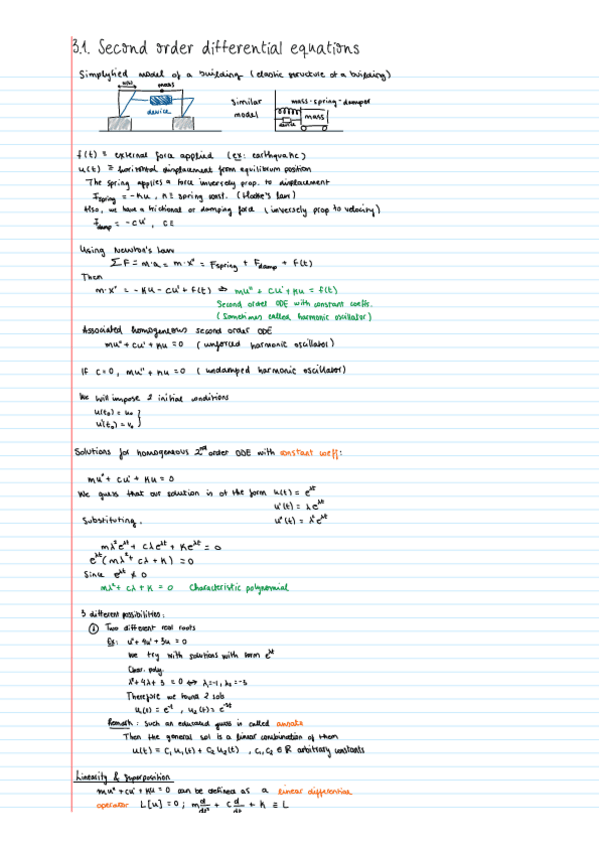 3.1. Second order differential equations
Simplyfied model of a building (elastic structure of a building)
u(t) mass
device
similar
model
mass-spring-damper
mass
device
f(t) ≡ external force applied (ex: earthquake)
u(t) ≡ horizontal displacement from equilibrium position
The spring applies a force inversely prop. to displacement
Fspring = -Ku, K ≡ spring const. (Hooke's law)
Also, we have a frictional or damping force (inversely prop to velocity)
Fdamp = -cu',
Using Newton's law
ΣF = m·a = m·x'' = Fspring + Fdamp + f(t)
Then
m·x'' = -Ku - cu' + f(t) ⇒ mu'' + cu' + Ku = f(t)
Second order ODE with constant coeffs.
(Sometimes called harmonic oscillator)
Associated homogeneous second order ODE
mu'' + cu' + Ku = 0 (unforced harmonic oscillator)
If c=0, mu'' + Ku = 0 (undamped harmonic oscillator)
We will impose 2 initial conditions
u(t₀) = u₀
u'(t₀) = v₀ }
Solutions for homogeneous 2nd order ODE with constant coeff:
mu'' + cu' + Ku = 0
We guess that our solution is of the form u(t) = e^λt
u'(t) = λe^λt
Substituting, u''(t) = λ²e^λt
mλ²e^λt + cλe^λt + Ke^λt = 0
e^λt (mλ² + cλ + K) = 0
Since e^λt ≠ 0
mλ² + cλ + K = 0 Characteristic polynomial
3 different possibilities:
① Two different real roots
Ex: u'' + 4u' + 3u = 0
We try with solutions with form e^λt
Char. poly.
λ² + 4λ + 3 = 0 ⇔ λ₁=-1, λ₂=-3
Therefore we found 2 sols
u₁(t) = e^-t, u₂(t) = e^-3t
Remark: Such an educated guess is called ansatz
Then the general sol is a linear combination of them
u(t) = C₁ u₁(t) + C₂ u₂(t), C₁, C₂ ∈ ℝ arbitrary constants
Linearity & superposition
mu'' + cu' + Ku = 0 can be defined as a linear differential
operator L[u] = 0; m d²/dt² + c d/dt + K ≡ L